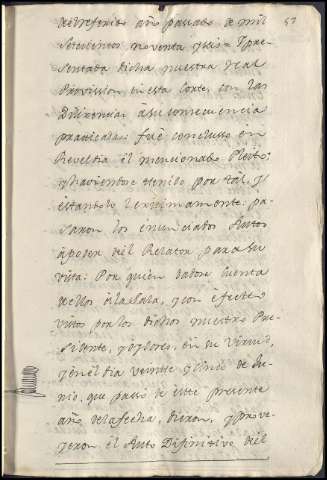 57
del referido año pasado de mil
Setecientos noventa y seis: Y pre-
sentada dicha nuestra Real
Provission en esta Corte, con las
Dilixencias à su consecuencia
practicadas: fuè concluso en
Reveldia el mencionado Pleito:
y haviendose tenido por tàl, y
estandolo lexitimamente: pa-
saron los enunciados Autos
à poder del Relator para su
vista: Por quien dadose cuenta
de ellos à la Sala, y con efecto
vistos por los dichos nuestro Pre-
sidente, y Oydores, en su virtud,
y en el dia veinte y cinco de Ju-
nio, que passò de este presente
año de la fecha, dieron, y prove-
yeron el Auto Difinitivo del